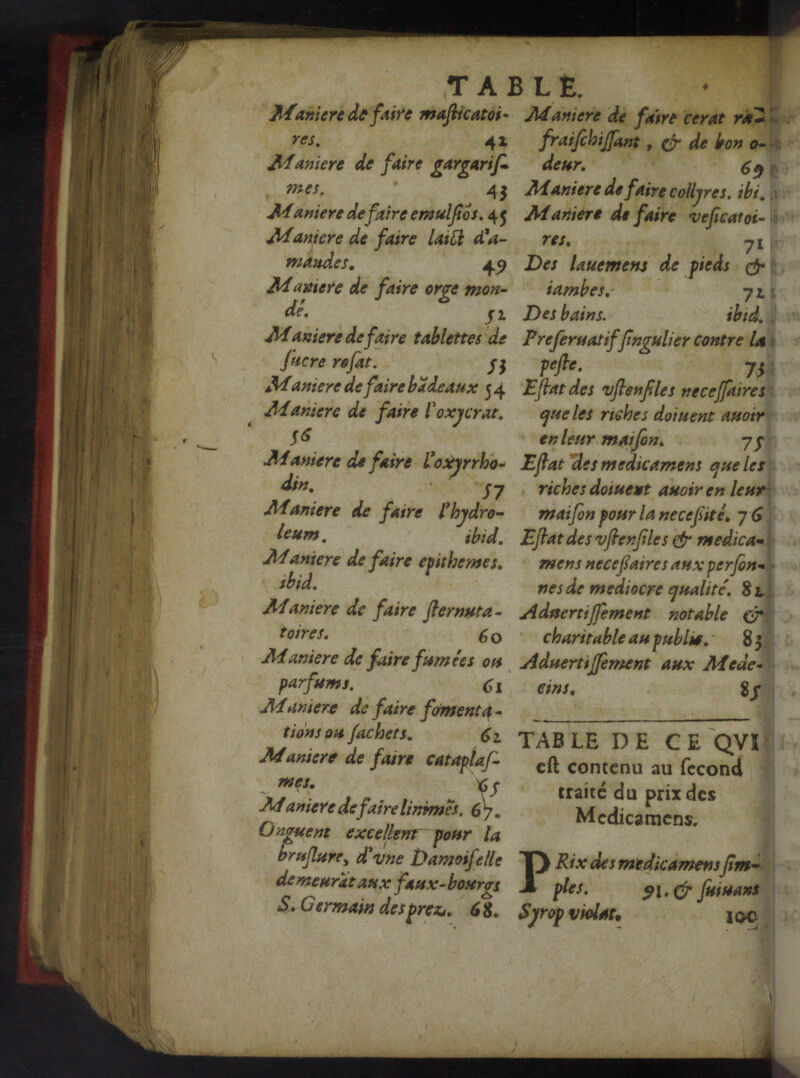 TABLE.
Maniere de faire masticatoi-
res. 42
Maniere de faire gargaris-
mes. 43
Maniere de faire emulsiõs. 45
Maniere de faire laict d'a-
mãudes. 49
Maniere de faire orge mon-
dé. 52
Maniere de faire tablettes de
sucre rosat. 53
Maniere de faire bãdeaux 54
Maniere de faire l'oxycrat.
56
Maniere de faire l'oxyrrho-
din. 57
Maniere de faire l'hydro-
leum. ibid.
Maniere de faire epithemes.
ibid.
Maniere de faire sternuta-
toires. 60
Maniere de faire fumées ou
parfums. 61
Maniere de faire fomenta-
tions ou sachets. 62
Maniere de faire cataplas-
mes. 65
Maniere de faire linimēs. 67.
Onguent excellent pour la
bruslure, d'vne Damoiselle
demeurãt aux faux-bourgs
S. Germain des prez. 68.
Maniere de faire cerat ra-
fraischissant, & de bon o-
deur. 69
Maniere de faire collyres. ibi.
Maniere de faire vesicatoi-
res. 71
Des lauemens de pieds &
iambes. 72
Des bains. ibid.
Preseruatif singulier contre la
peste. 73
Estat des vstensiles necessaires
que les riches doiuent auoir
en leur maison. 75
Estat des medicamens que les
riches doiuent auoir en leur
maison pour la necessité. 76
Estat des vstensiles & medica-
mens necessaires aux person-
nes de mediocre qualité. 82
Aduertissement notable &
charitable au public. 83
Aduertissement aux Mede-
cins. 85
TABLE DE CE QVI
est contenu au second
traité du prix des
Medicamens.
PRix des medicamens sim-
ples. 91. & suiuans
Syrop violat. 100